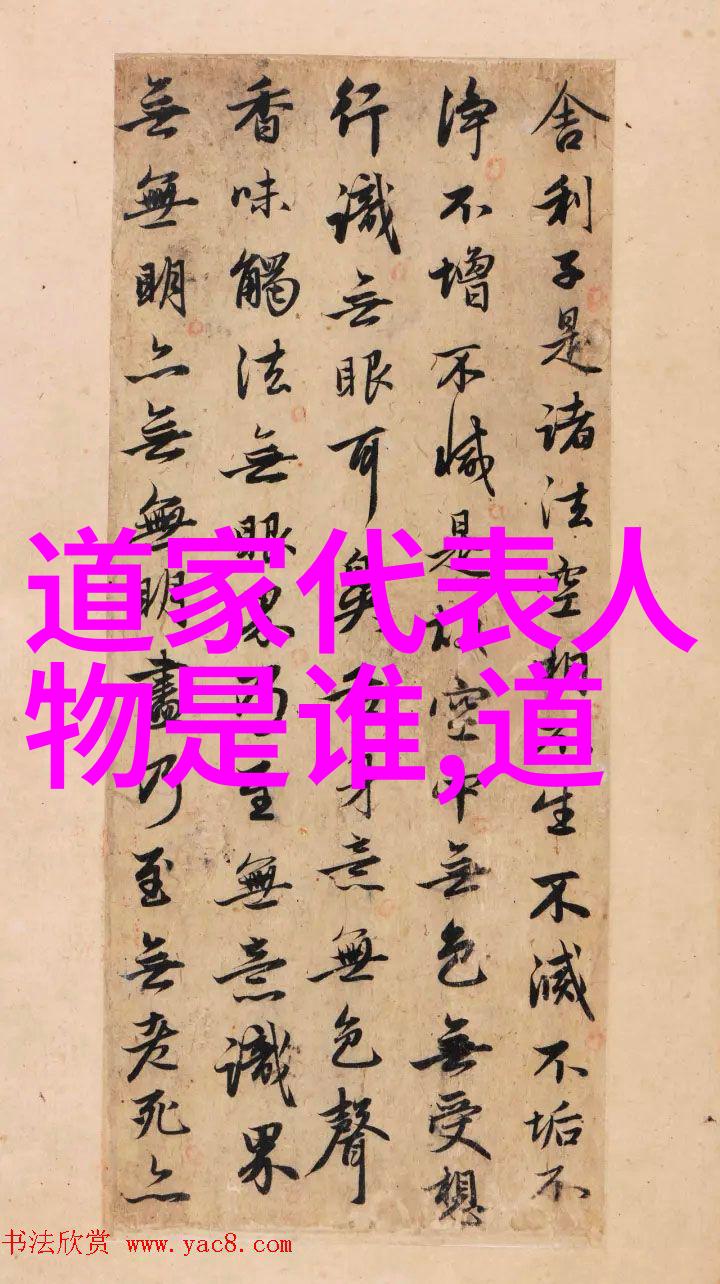 舍利子是諸法空相不生不滅不垢不
淨不增不減是故空中無色無受想
行識無眼耳鼻舌身意無色聲
香味觸法無眼界乃至無意識界
無無明亦無無明盡乃至無老死亦
道家代表人
物是谁,道
书法欣赏 www.yac8.com